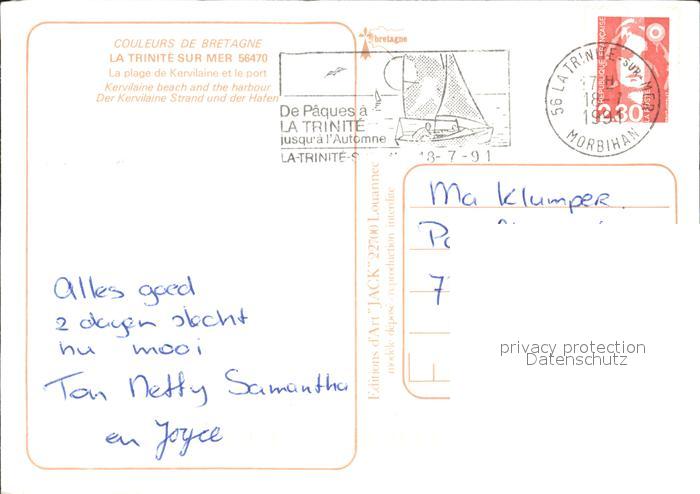 COULEURS DE BRETAGNE
LA TRINITÉ SUR MER 56470
La plage de Kervilaine et le port
Kervilaine beach and the harbour
Der Kervilaine Strand und der Hafen
bretagne
De Pâques à
LA TRINITÉ
jusqu'à l'Automne
LA-TRINITÉ-S 18-7-91
56 LA TRINITE-SUR-MER
17 H
18-7
1991
MORBIHAN
REPUBLIQUE FRANÇAISE
2,30
LA POSTE
Editions d'Art "JACK" 22700 Louannec
modèle déposé - reproduction interdite
Ma Klumper.
7
F
privacy protection
Datenschutz
Alles goed
2 dagen slecht
nu mooi
Ton Netty Samantha
en Joyce